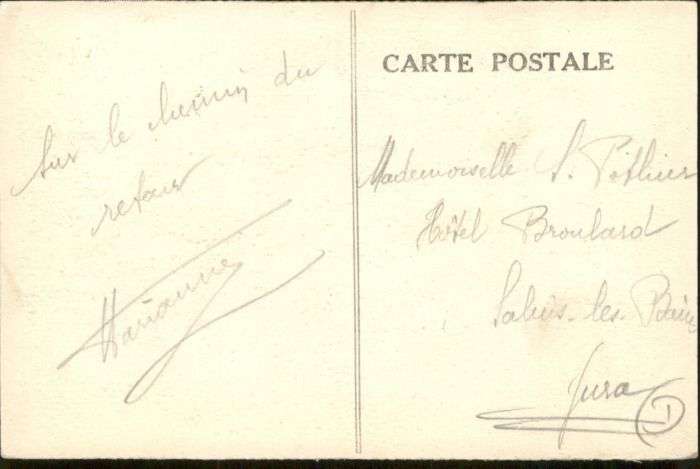 Sur le chemin du
retour
Marianne
CARTE POSTALE
Mademoiselle S. Pothier
Hôtel Broulard
Salins-les-Bains
Jura
1